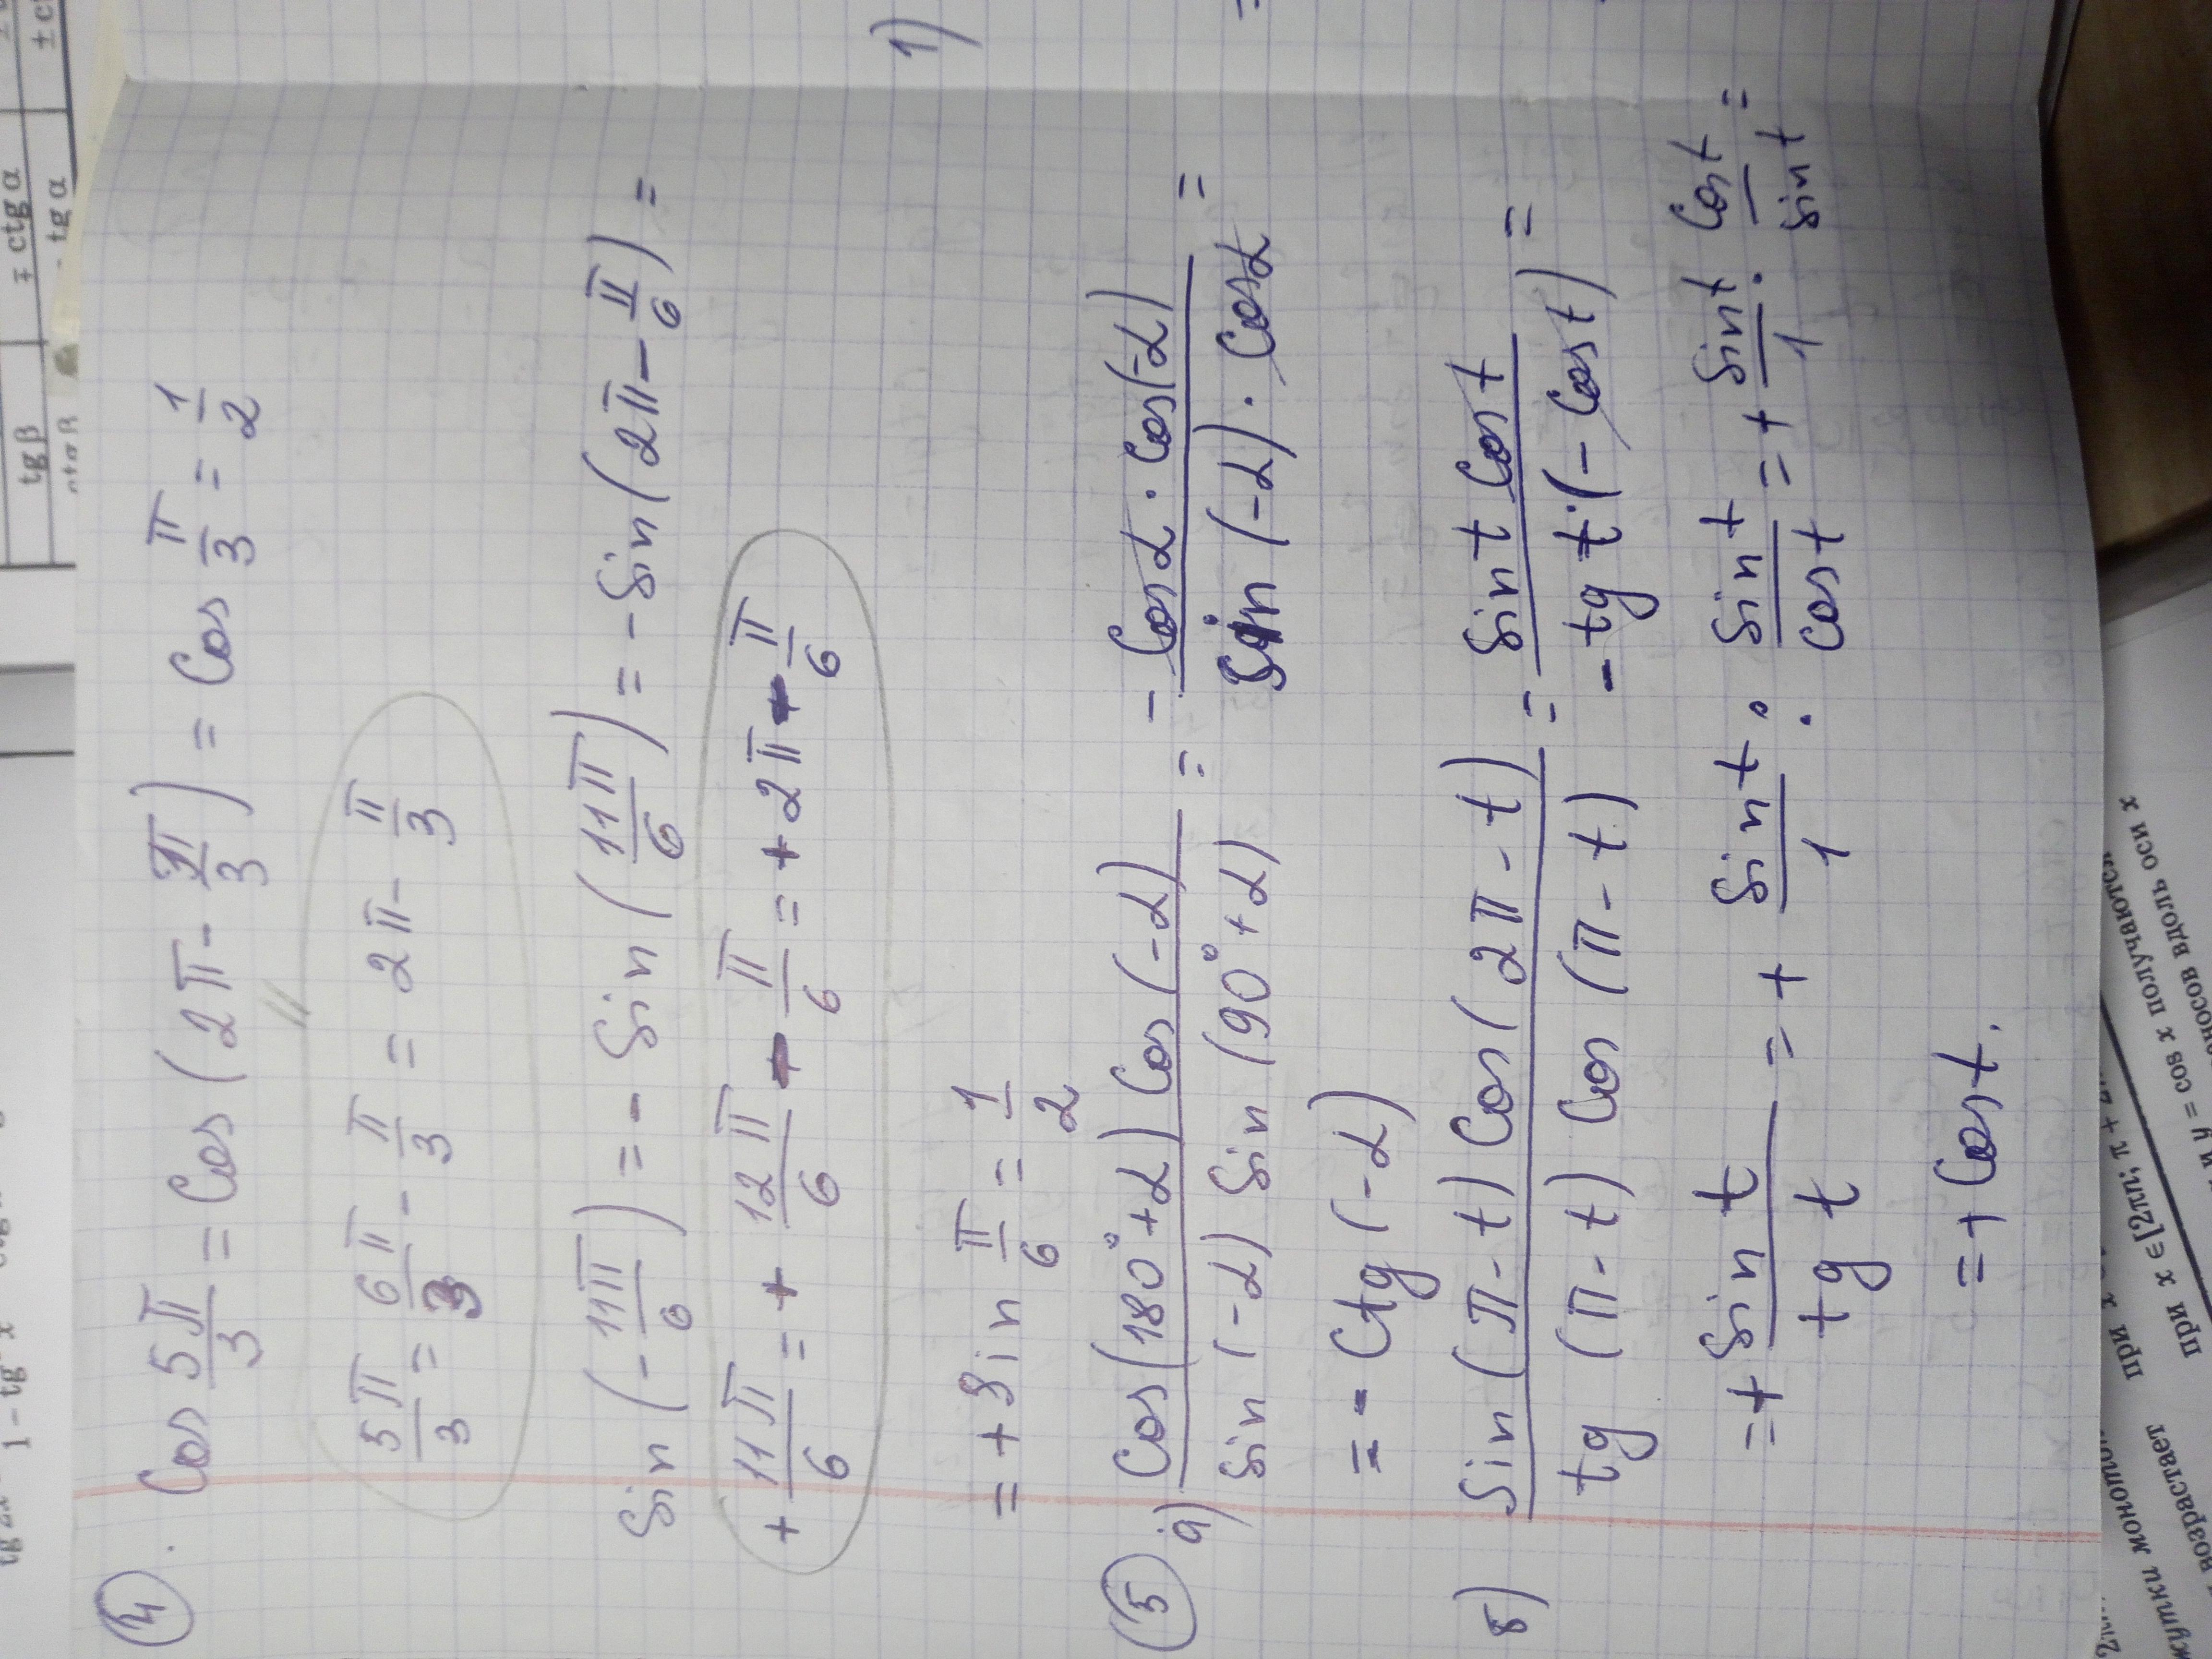 ④. Cos 5π/3 = Cos (2π - π/3) = Cos π/3 = 1/2
5π/3 = 6π/3 - π/3 = 2π - π/3
Sin (- 11π/6) = - Sin (11π/6) = - Sin (2π - π/6) =
+ 11π/6 = + 12π/6 - π/6 = + 2π - π/6
= + Sin π/6 = 1/2
1)
⑤ а) Cos(180°+α) Cos(-α) / Sin(-α) Sin(90°+α) = - Cosα · Cos(-α) / Sin(-α) · Cosα =
= - Ctg (-α)
б) Sin(π-t) Cos(2π-t) / tg(π-t) Cos(π-t) = Sin t Cos t / -tg t·(-Cos t) =
= + Sin t / tg t = + Sin t / 1 : Sin t / Cos t = + Sin t / 1 · Cos t / Sin t =
= + Cos t.
tg β
∓ ctg α
- tg α
1 - tg² x
при x ∈ [2πn; π + 2
и y = cos x получаются
вдоль оси x
возрастает